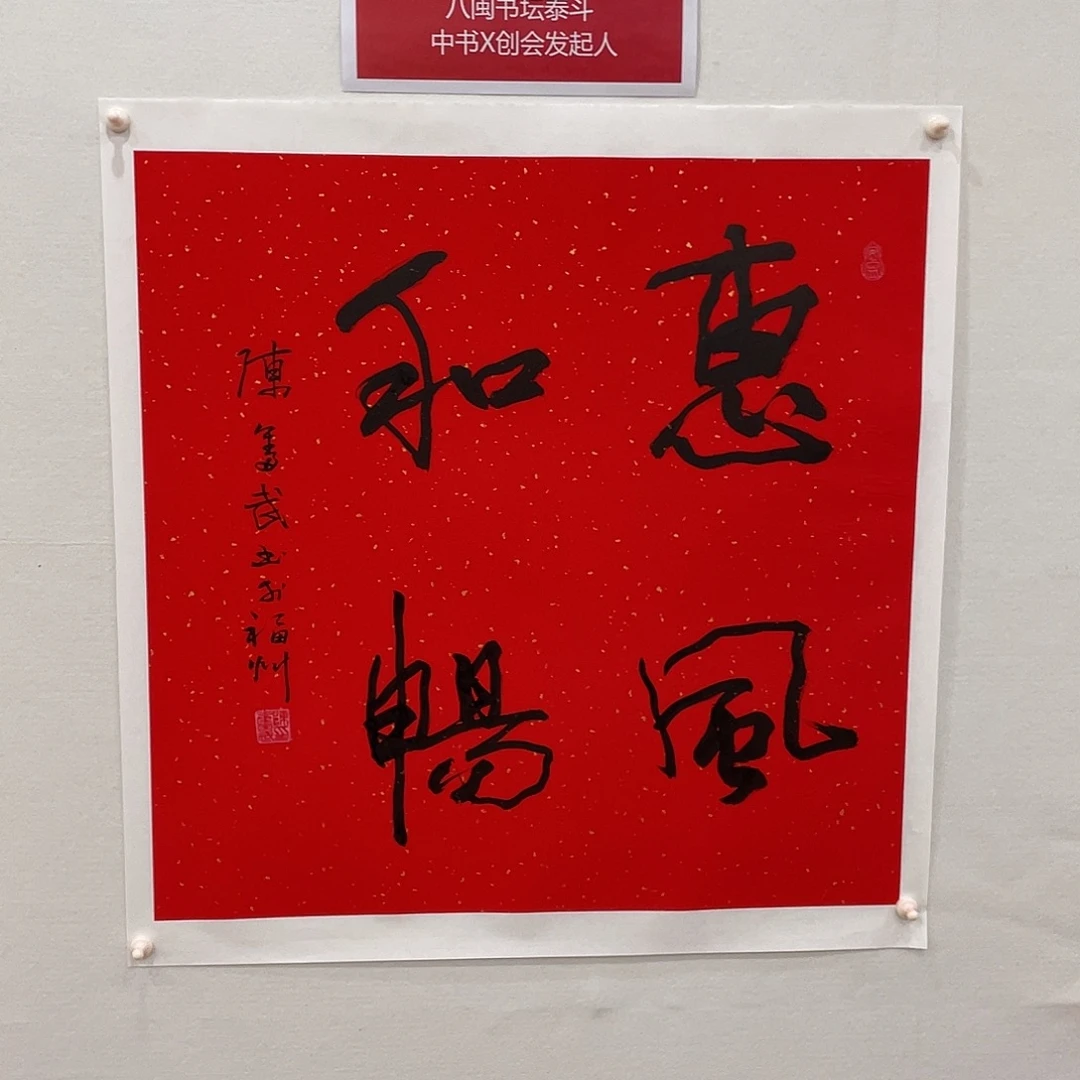 八闽书坛泰斗
中书X创会发起人
惠風
和暢
陳奮武书於福州